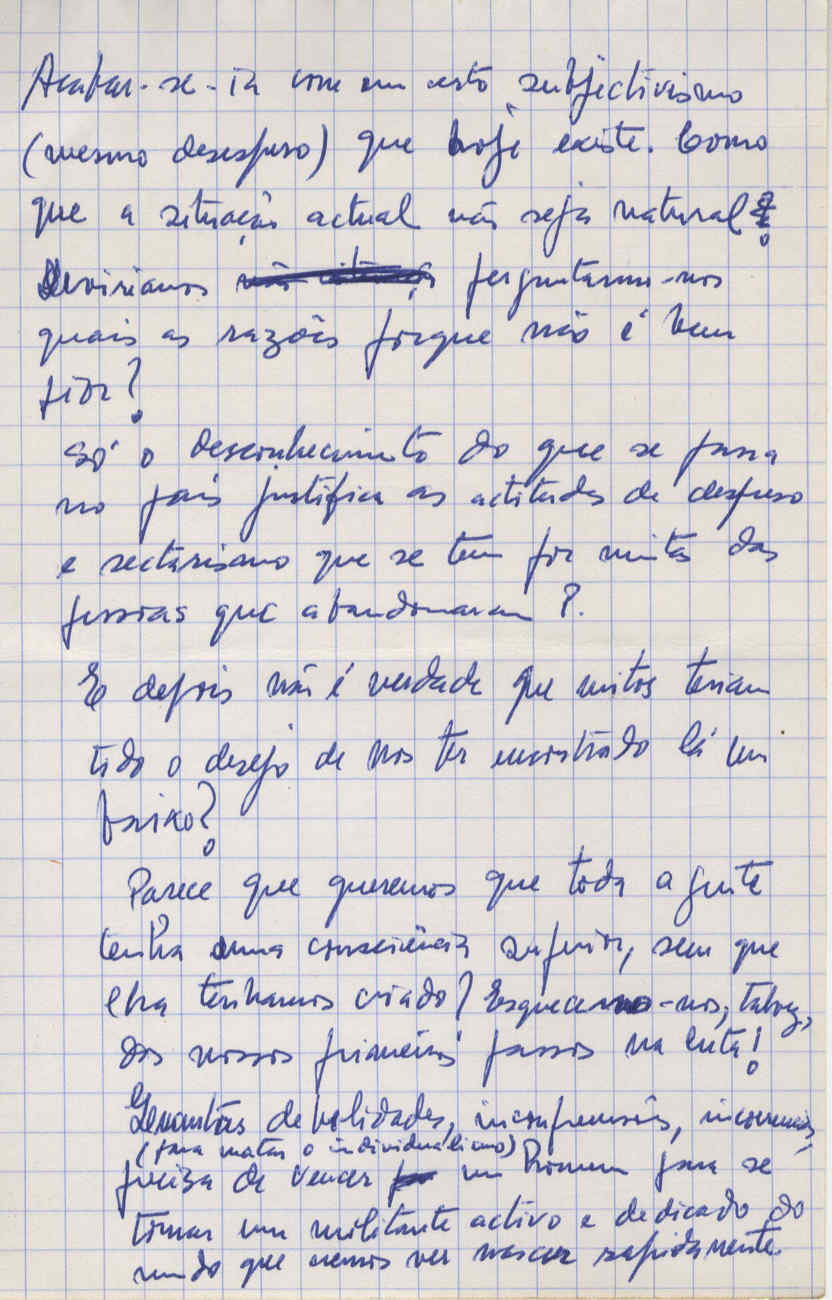 Acabar-se-ia com um certo subjectivismo
(mesmo desespero) que hoje existe. Como
que a situação actual não seja natural?
Deviriamos perguntarmo-nos
quais as razões porque não é bem
pior?
Só o desconhecimento do que se passa
no país justifica as actitudes de despreso
e sectarismo que se tem por muitas das
pessoas que abandonaram P.
E depois não é verdade que muitos teriam
tido o desejo de nos ter encontrado lá em
baixo?
Parece que queremos que toda a gente
tenha uma consciência superior, sem que
lha tenhamos criado? Esquecemo-nos, talvez,
dos nossos primeiros passos na luta!
Quantas debilidades, incompreensões,
(para matar o individualismo)
precisa de vencer um homem para se
tornar um militante activo e dedicado do
mundo que vemos nascer rapidamente.